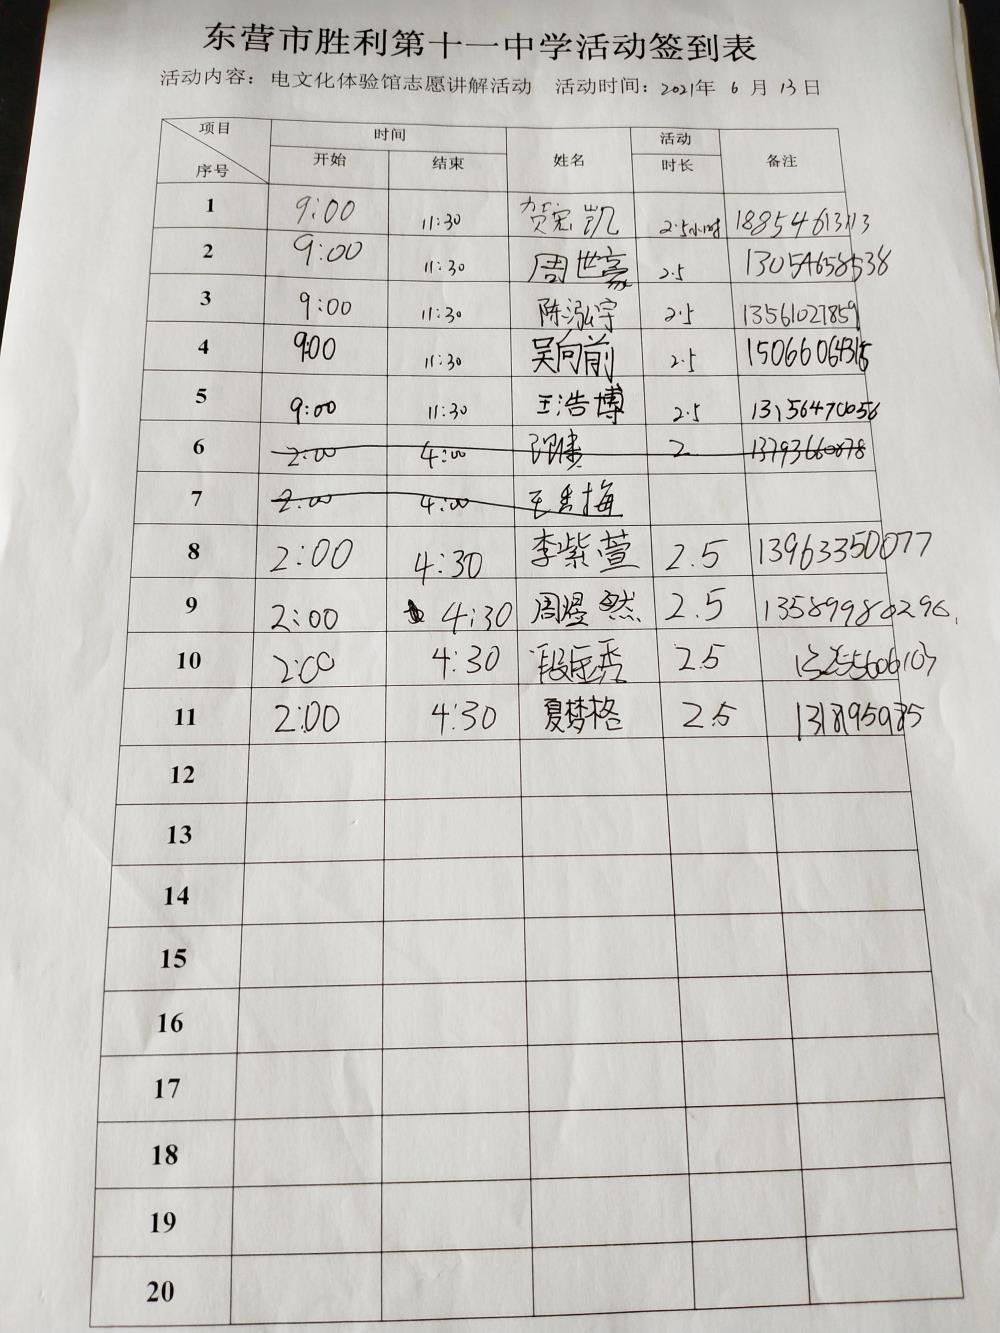 东营市胜利第十一中学活动签到表
活动内容：电文化体验馆志愿讲解活动 活动时间：2021年 6 月 13 日
项目 时间 姓名 活动 备注
序号 开始 结束 时长
1 9:00 11:30 贺宏凯 2.5小时 18854613113
2 9:00 11:30 周世豪 2.5 13054658538
3 9:00 11:30 陈泓宇 2.5 13561027859
4 9:00 11:30 吴向前 2.5
5 9:00 11:30 王浩博 2.5 13156470056
6 2:00 4:00 2 13793660878
7 2:00 4:00
8 2:00 4:30 李紫萱 2.5 13963350077
9 2:00 4:30 周煜然 2.5 13589980296.
10 2:00 4:30 2.5
11 2:00 4:30 夏梦格 2.5
12
13
14
15
16
17
18
19
20